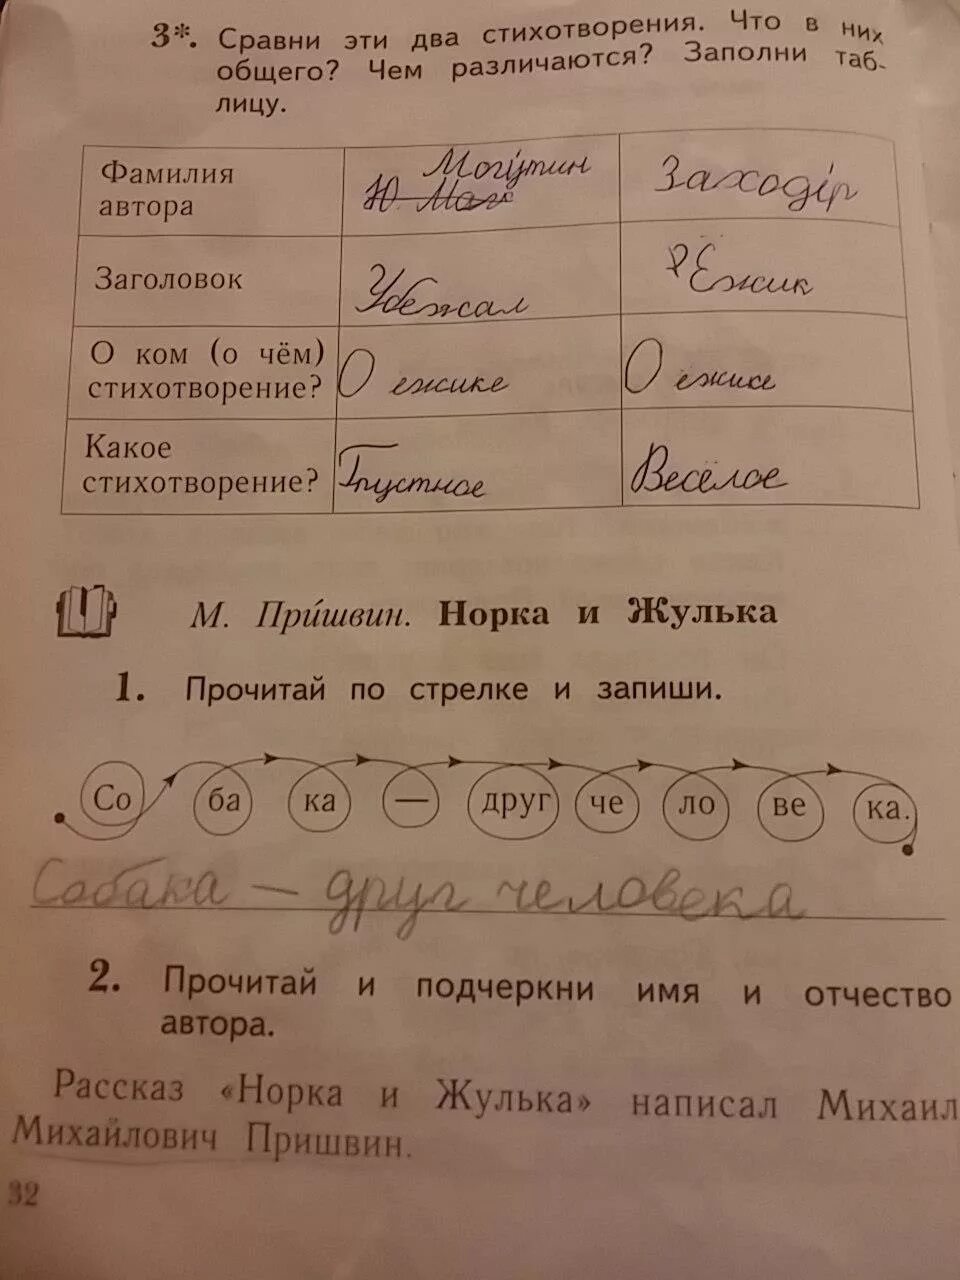 3*. Сравни эти два стихотворения. Что в них
общего? Чем различаются? Заполни таб-
лицу.
Фамилия
автора
Могутин
Заходер
Заголовок
Убежал
Ёжик
О ком (о чём)
стихотворение?
О ежике
О ёжике
Какое
стихотворение?
Грустное
Весёлое
М. При́швин. Норка и Жулька
1. Прочитай по стрелке и запиши.
Со ба ка — друг че ло ве ка.
Собака — друг человека
2. Прочитай и подчеркни имя и отчество
автора.
Рассказ «Норка и Жулька» написал Михаил
Михайлович Пришвин.
32